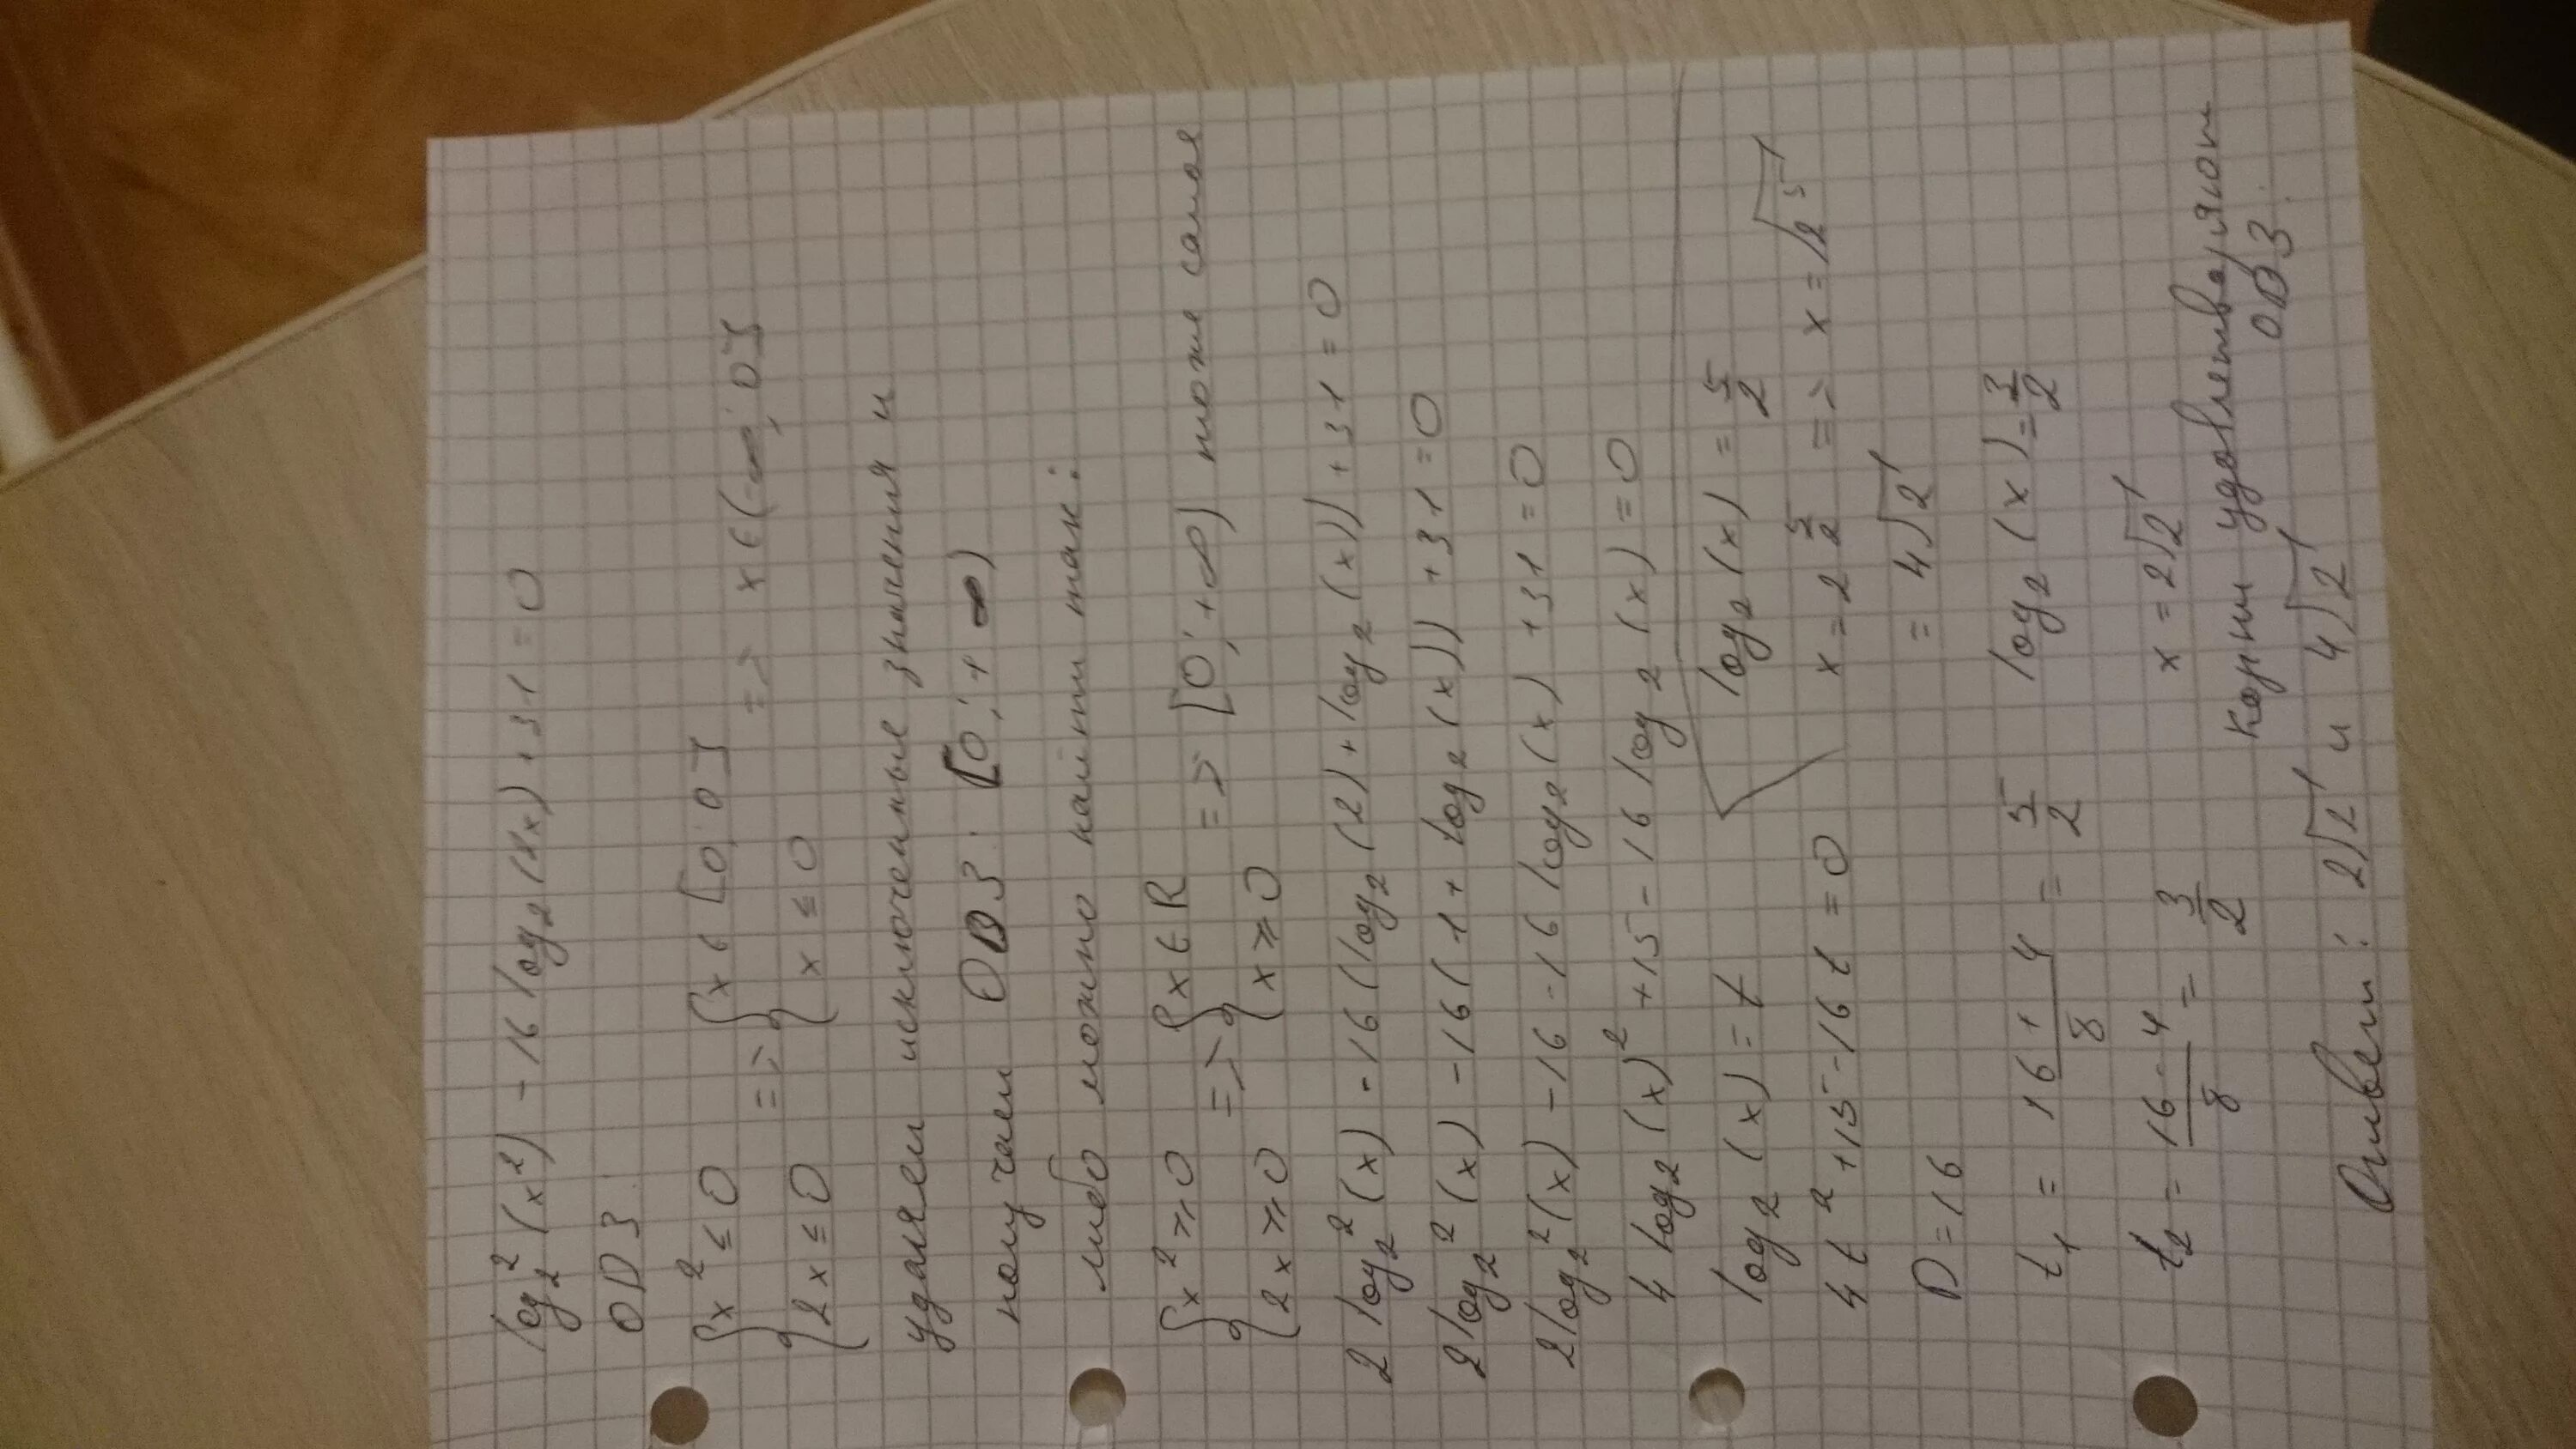 log₂²(x²) - 16 log₂(2x) + 31 = 0
ОДЗ:
{x² ≤ 0 => {x ∈ [0; 0]
{2x ≤ 0 => {x ≤ 0 => x ∈ (-∞; 0]
удаляем исключенные значения и
получаем ОДЗ: [0; +∞)
либо можно найти так:
{x² ≥ 0 => {x ∈ R
{2x ≥ 0 => {x ≥ 0 => [0; +∞) тоже самое
2 log₂²(x) - 16(log₂(2) + log₂(x)) + 31 = 0
2 log₂²(x) - 16(1 + log₂(x)) + 31 = 0
2 log₂²(x) - 16 - 16 log₂(x) + 31 = 0
4 log₂(x)² + 15 - 16 log₂(x) = 0
log₂(x) = t
4t² + 15 - 16t = 0
D = 16
t₁ = (16 + 4)/8 = 5/2
t₂ = (16 - 4)/8 = 3/2
log₂(x) = 5/2
x = 2^(5/2) => x = √2⁵
= 4√2
log₂(x) = 3/2
x = 2√2
корни удовлетворяют
ОДЗ.
Ответ: 2√2 и 4√2